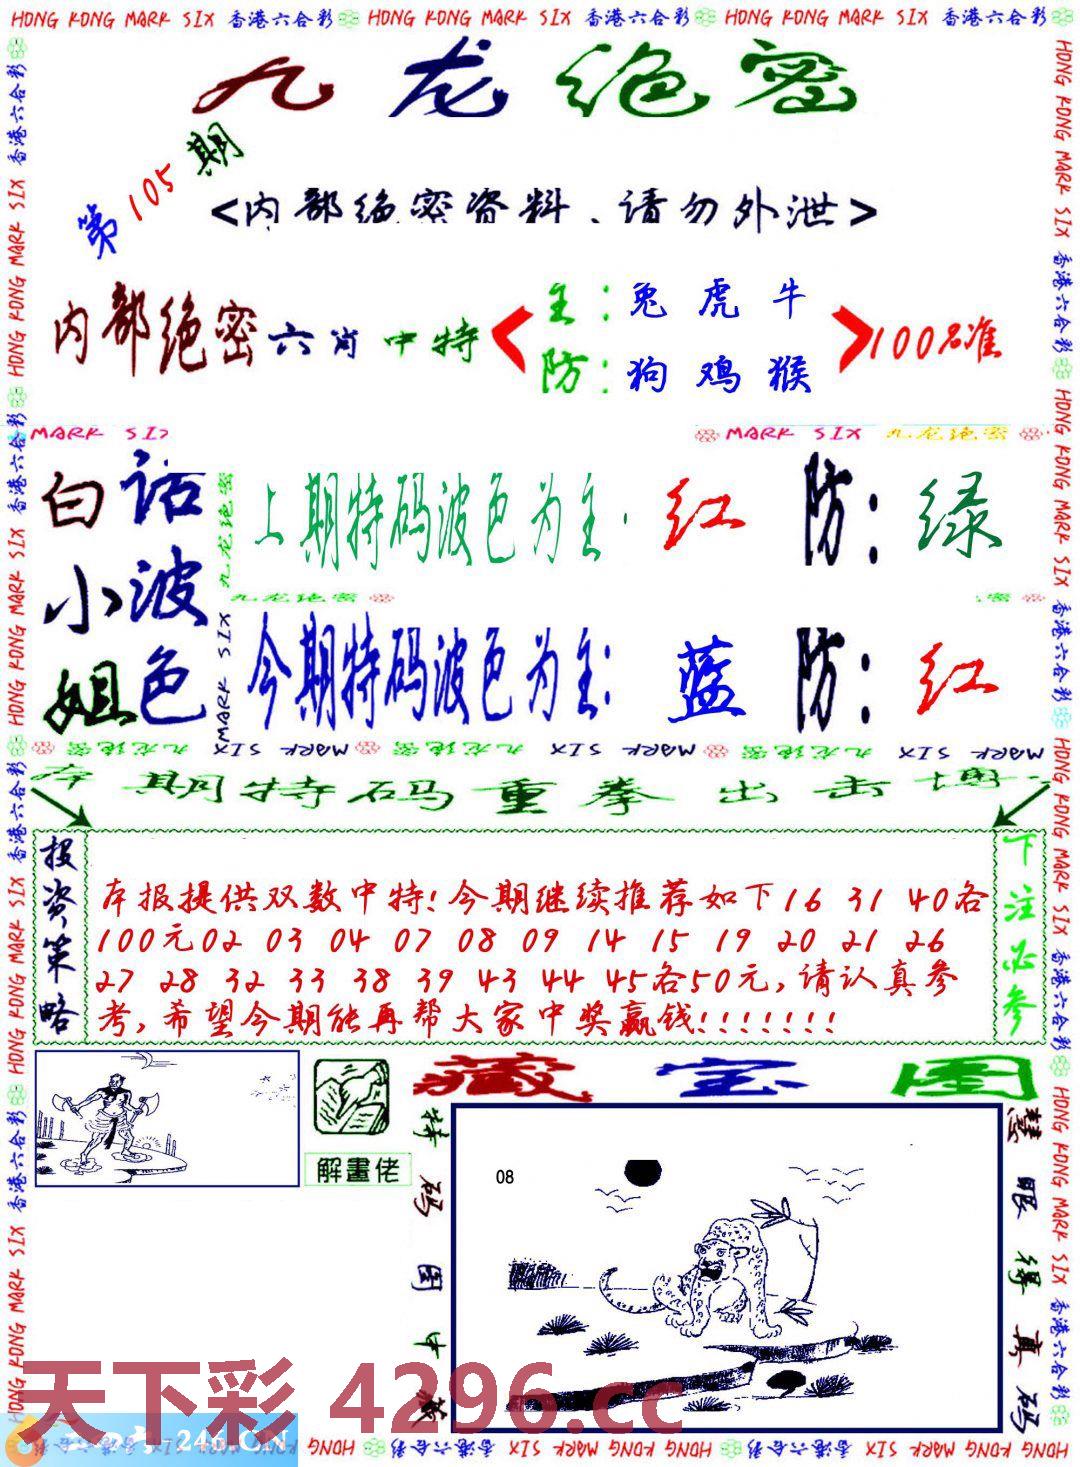 HONG KONG MARK SIX 香港六合彩 HONG KONG MARK SIX 香港六合彩 HONG KONG MARK SIX 香港六合彩
九龙绝密
第105期
<内部绝密资料、请勿外泄>
内部绝密六肖中特
主：兔 虎 牛
防：狗 鸡 猴
100%准
MARK SIX
MARK SIX 九龙绝密
白话
小波
姐色
九龙绝密
MARK SIX
上期特码波色为主. 红 防：绿
九龙绝密
今期特码波色为主: 蓝 防：红
九龙绝密 MARK SIX 九龙绝密 MARK SIX 九龙绝密 MARK SIX
本期特码重拳出击
投资策略
本报提供双数中特!今期继续推荐如下16 31 40各
100元02 03 04 07 08 09 14 15 19 20 21 26
27 28 32 33 38 39 43 44 45各50元,请认真参
考,希望今期能再帮大家中奖赢钱!!!!!!!
下注必参
解畫佬
藏宝图
特码图中藏
08
慧眼得真码
天下彩 4296.cc
246.CN
HONG KONG MARK SIX 香港六合彩